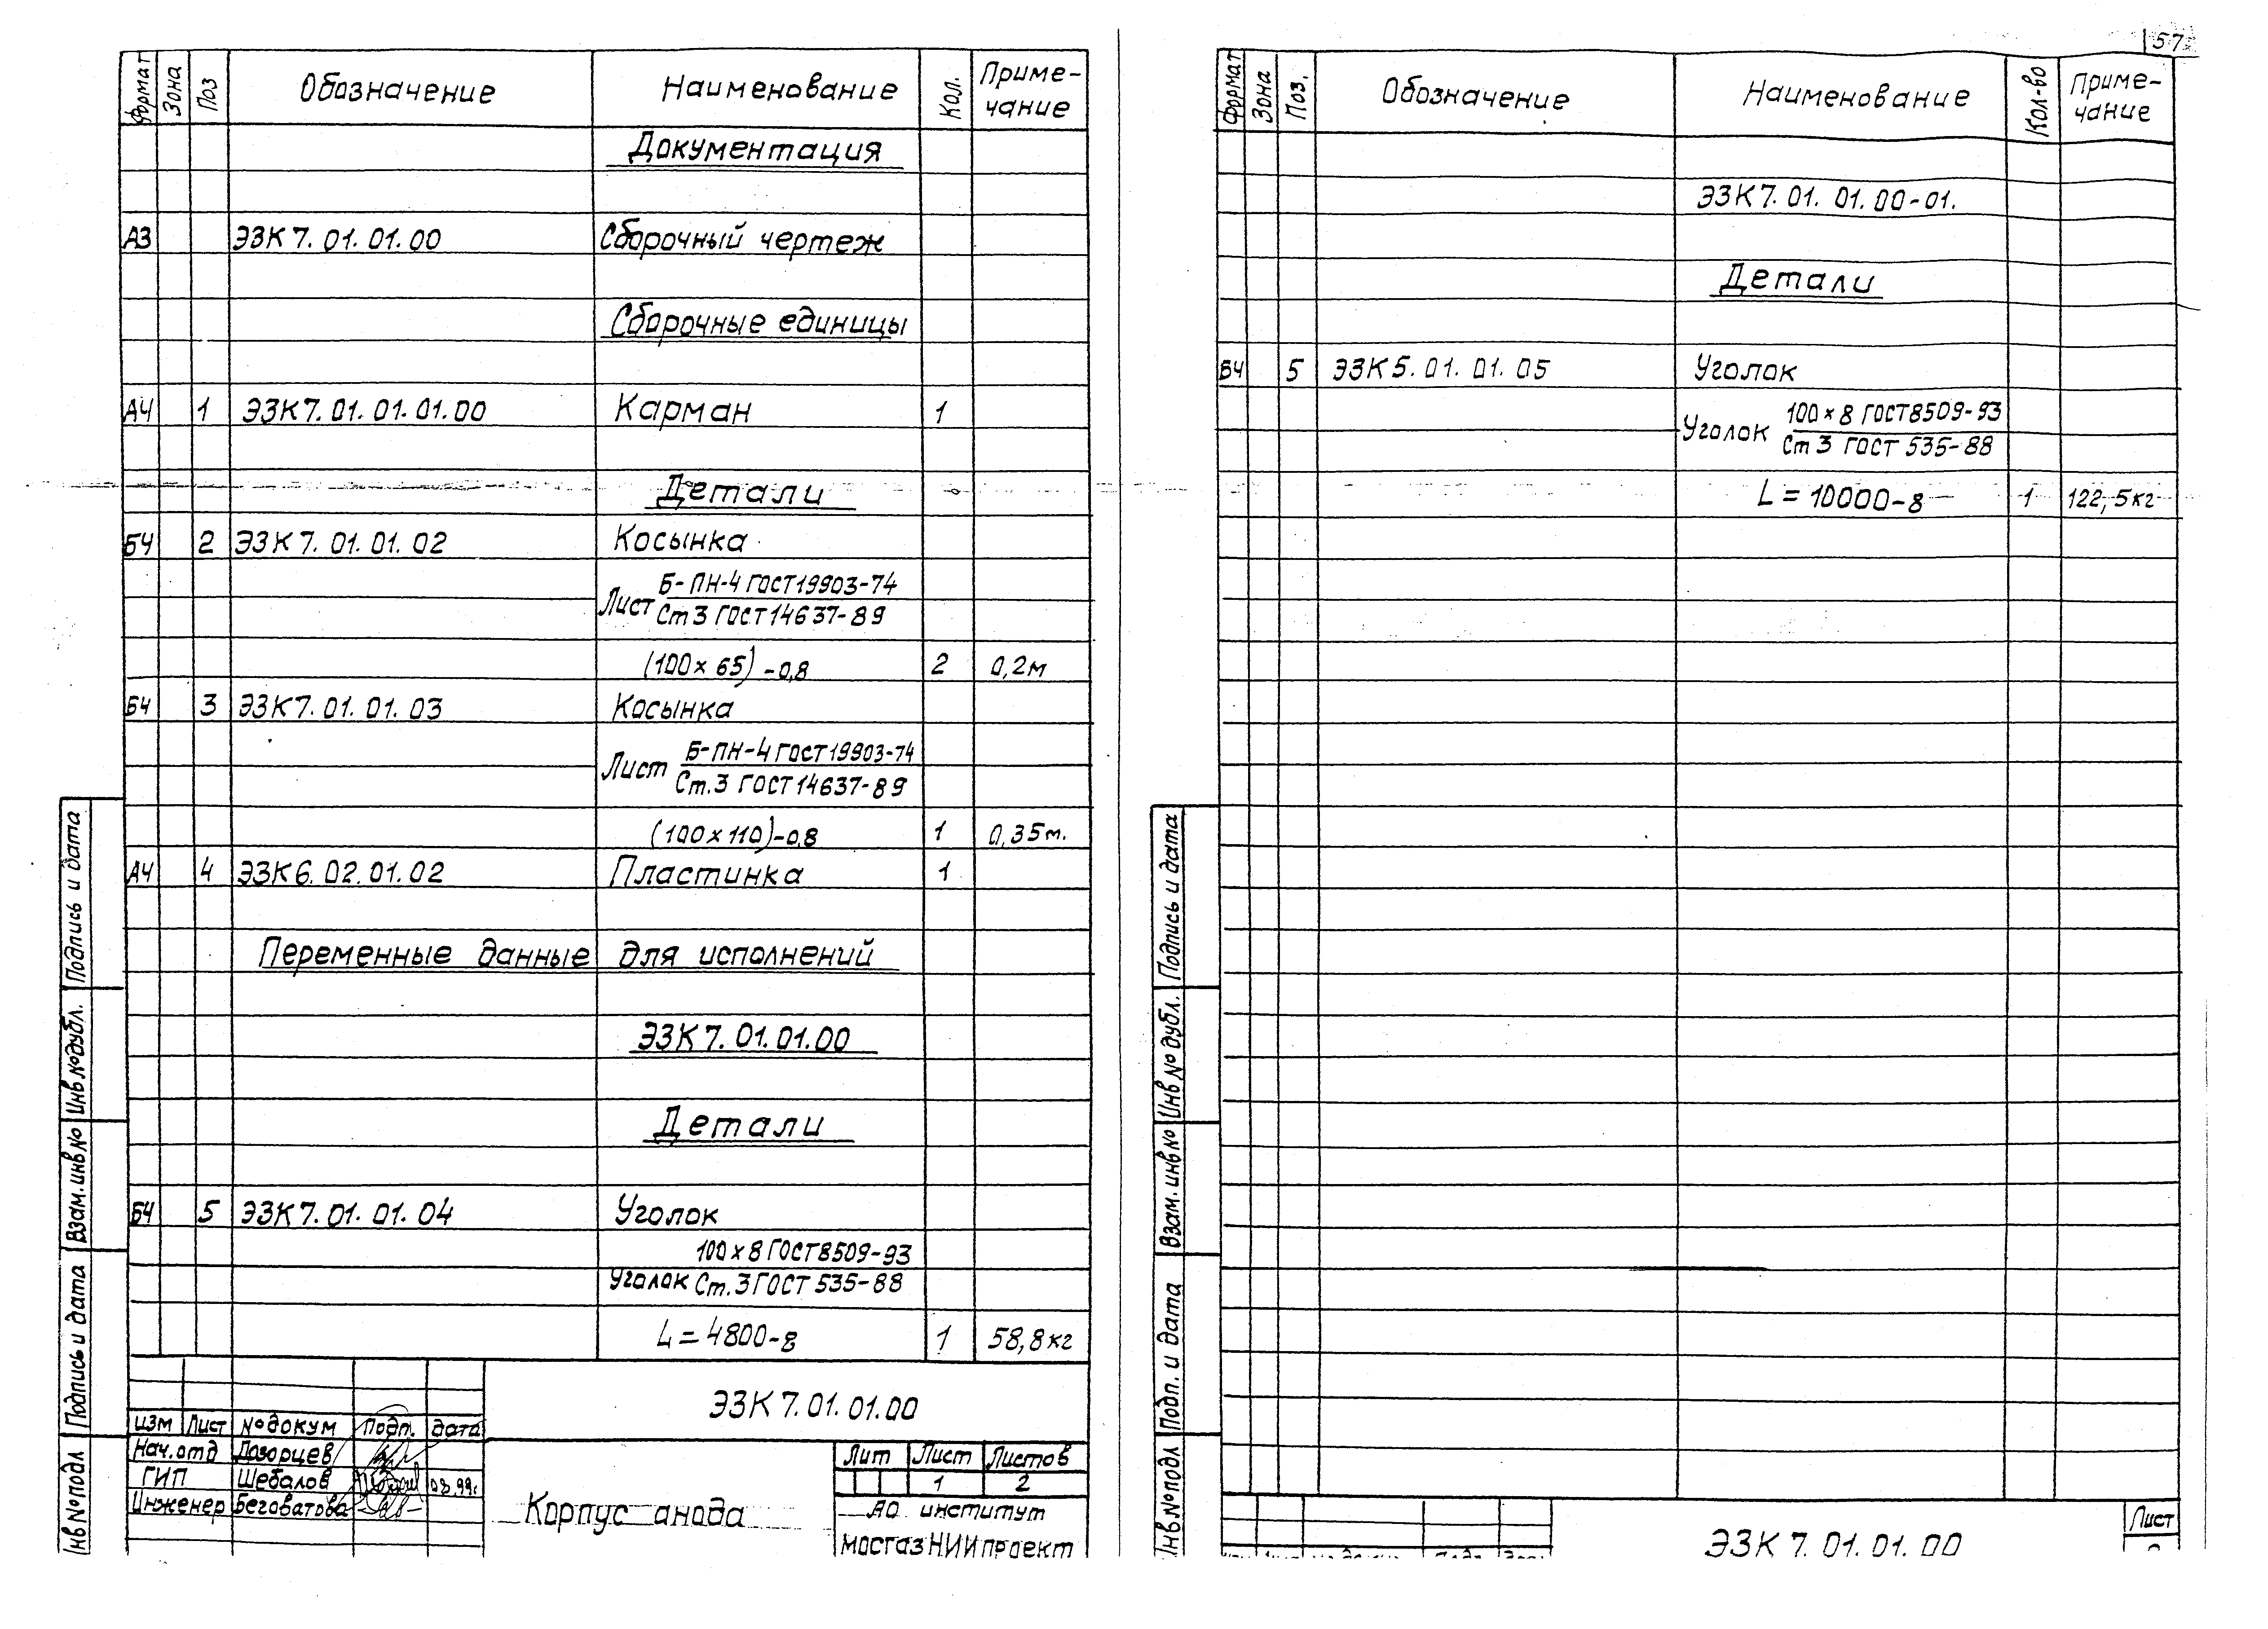 Формат Зона Поз Обозначение Наименование Кол. Приме-
чание
Документация
А3 ЭЗК 7. 01. 01. 00 Сборочный чертеж
Сборочные единицы
А4 1 ЭЗК 7. 01. 01. 01. 00 Карман 1
Детали
БЧ 2 ЭЗК 7. 01. 01. 02 Косынка
Лист Б-ПН-4 ГОСТ 19903-74
Ст 3 ГОСТ 14637-89
(100 х 65) -0,8 2 0,2м
БЧ 3 ЭЗК 7. 01. 01. 03 Косынка
Лист Б-ПН-4 ГОСТ 19903-74
Ст. 3 ГОСТ 14637-89
(100 х 110) -0,8 1 0,35м.
А4 4 ЭЗК 6. 02. 01. 02 Пластинка 1
Переменные данные для исполнений
ЭЗК 7. 01. 01. 00
Детали
БЧ 5 ЭЗК 7. 01. 01. 04 Уголок
100 х 8 ГОСТ 8509-93
Уголок Ст. 3 ГОСТ 535-88
L = 4800-8 1 58,8 кг
ЭЗК 7. 01. 01. 00
изм Лист № докум Подп. дата
Нач. отд Дозорцев
ГИП Шебалов 03.99г.
Инженер Беговатова
Корпус анода
Лит Лист Листов
1 2
АО институт
мосгазНИИпроект
Подпись и дата
Инв № дубл.
Взам. инв №
Подпись и дата
Инв № подл
57
Формат Зона Поз. Обозначение Наименование Кол-во Приме-
чание
ЭЗК 7. 01. 01. 00-01.
Детали
БЧ 5 ЭЗК 5. 01. 01. 05 Уголок
Уголок 100 х 8 ГОСТ 8509-93
Ст 3 ГОСТ 535-88
L = 10000-8 1 122,5 кг
ЭЗК 7. 01. 01. 00
Лист
Подпись и дата
Инв № дубл.
Взам. инв №
Подп. и дата
Инв № подл